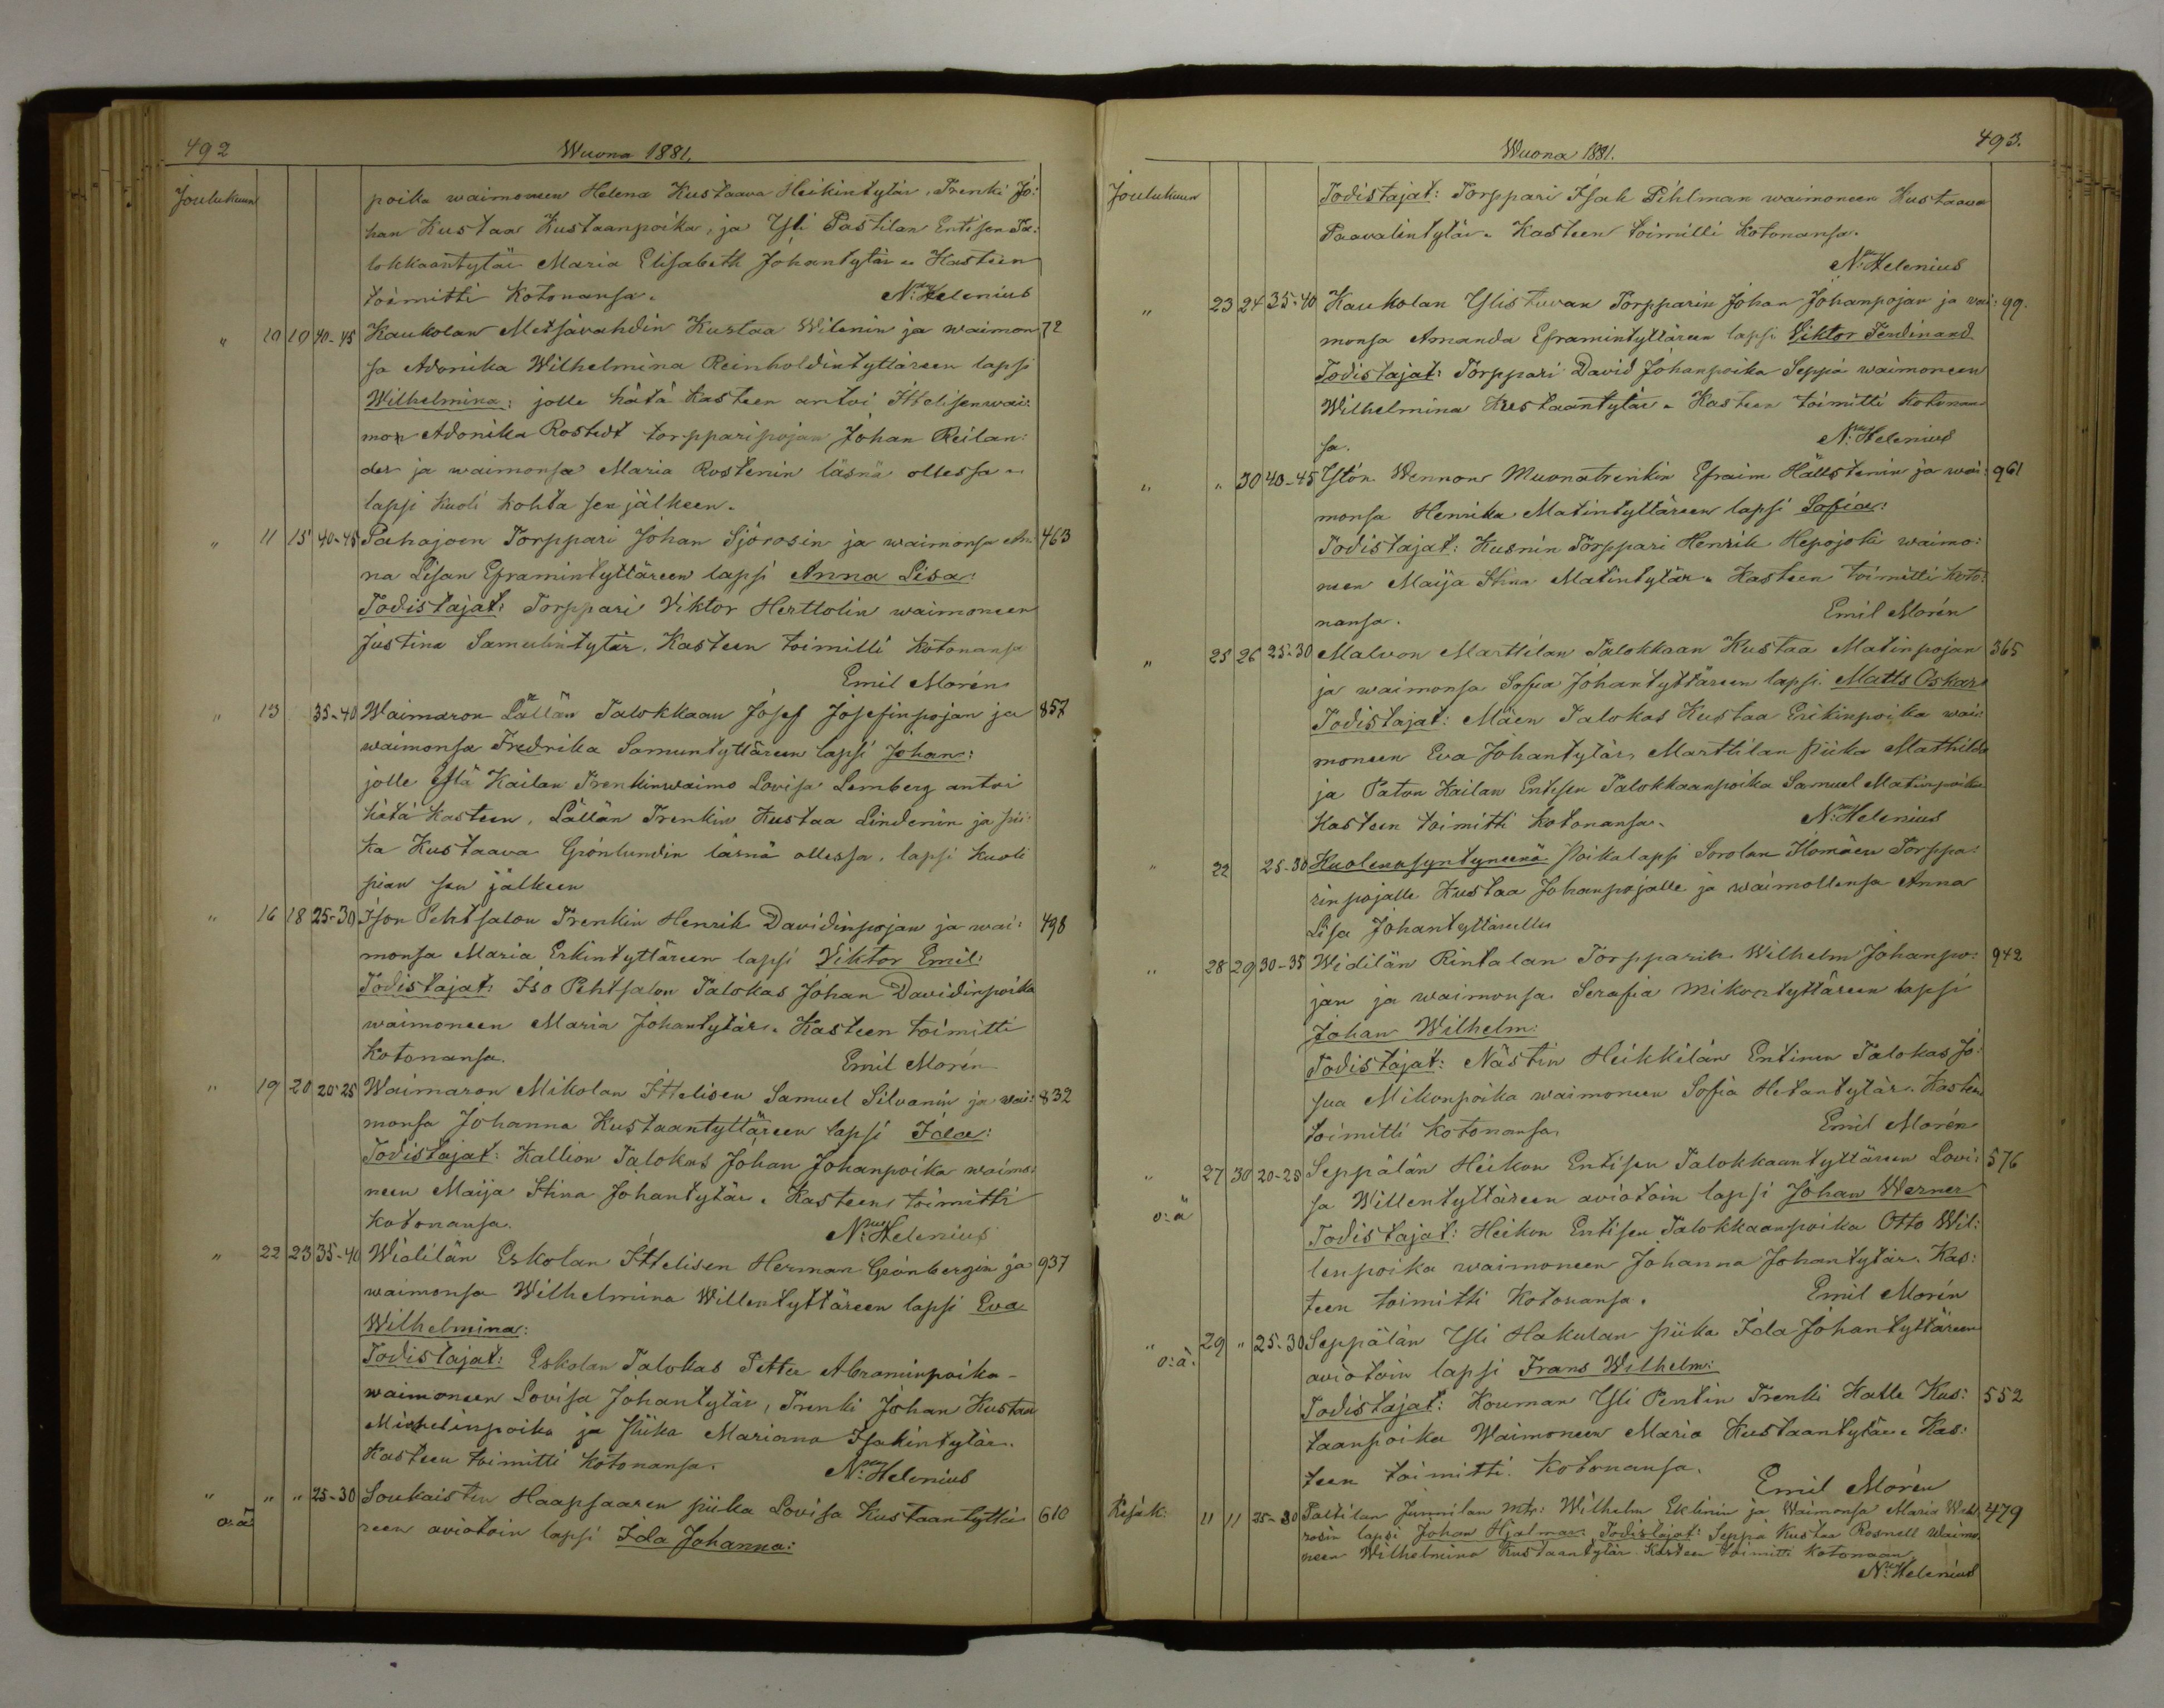 492
Wuona 1881.
Joulukuun
poika waimoneen Helena Kustaava Heikintytär, Trenki Jo:
han Kustaa Kustaanpoika, ja Yli Pastilan Entisen Ta:
lokkaantytär Maria Elisabeth Johantytär. Kasteen
toimitti Kotonansa. N: Helenius
" 10 10 40-45 Kaukolan Metsävahdin Kustaa Wilenin ja waimon 72
sa Adonika Wilhelmina Reinholdintyttäreen lapsi
Wilhelmina: jolle hätä kasteen antoi Ittelisenwai:
mon Adonika Rostedt torpparipojan Johan Reilan:
der ja waimonsa Maria Rostenin läsnä ollessa.
lapsi kuoli kohta sen jälkeen.
" 11 15 40-45 Pahajoen Torppari Johan Sjörosin ja waimonsa An: 463
na Lisan Eframintyttäreen lapsi Anna Lisa:
Todistajat: Torppari Viktor Herttolin waimoneen
Justina Samulintytär. Kasteen toimitti kotonansa
Emil Morén
" 13 35-40 Waimaron Lällän Talokkaan Josef Josefinpojan ja 857
waimonsa Fredrika Samuntyttäreen lapsi Johan:
jolle Ylä Kailan Trenkinwaimo Lovisa Lemberg antoi
hätä kasteen, Lällän Trenkin Kustaa Lindenin ja pii:
ka Kustaava Grönlundin läsnä ollessa. lapsi kuoli
pian sen jälkeen
" 16 18 25-30 Ison Pehtsalon Trenkin Henrik Davidinpojan ja wai: 498
monsa Maria Erkintyttäreen lapsi Viktor Emil:
Todistajat: Iso Pehtsalon Talokas Johan Davidinpoika
waimoneen Maria Johantytär. Kasteen toimitti
Kotonansa. Emil Morén
" 19 20 20-25 Waimaron Mikolan Ittelisen Samuel Silvanin ja wai: 832
monsa Johanna Kustaantyttäreen lapsi Ida:
Todistajat: Kallion Talokas Johan Johanpoika waimo:
neen Maija Stina Johantytär. Kasteen toimitti
kotonansa. N: Helenius
" 22 23 35-40 Widilän Eskolan Ittelisen Herman Grönbergin ja 937
waimonsa Wilhelmina Willentyttäreen lapsi Eva
Wilhelmina:
Todistajat: Eskolan Talokas Petter Abraminpoika
waimoneen Lovisa Johantytär, Trenki Johan Kustaa
Michelinpoika ja Piika Mariana Isakintytär.
Kasteen toimitti Kotonansa. N: Helenius
" " " 25-30 Soukaisten Haapsaaren piika Lovisa Kustaantyttä: 610
o:ä reen aviotoin lapsi Ida Johanna:
493.
Wuona 1881.
Joulukuun
Todistajat: Torppari Isak Pihlman waimoneen Kustaava
Paavalintytär. Kasteen toimitti kotonansa.
N: Helenius
" 23 24 35-40 Kaukolan Ylistuvan Torpparin Johan Johanpojan ja wai: 99.
monsa Amanda Eframintyttäreen lapsi Viktor Ferdinand
Todistajat: Torppari David Johanpoika Seppä waimoneen
Wilhelmina Kustaantytär. Kasteen toimitti kotonan
sa. N: Helenius
" " 30 40-45 Ylön Wennon Muonatrenkin Efraim Hällstenin ja wai: 961
monsa Henrika Matintyttäreen lapsi Sofia:
Todistajat: Kusnin Torppari Henrik Hepojoki waimo:
neen Maija Stina Matintytär. Kasteen toimitti koto:
nansa. Emil Morén
" 25 26 25-30 Malvon Marttilan Talokkaan Kustaa Matinpojan 365
ja waimonsa Sofia Johantyttäreen lapsi Matts Oskar
Todistajat: Mäen Talokas Kustaa Erikinpoika wai:
moneen Eva Johantytär, Marttilan Piika Mathilda
ja Paton Kailan Entisen Talokkaanpoika Samuel Matinpoika
Kasteen toimitti kotonansa. N: Helenius
" 22 25-30 Kuolenasyntyneenä Poikalapsi Sorolan Ilomäen Torppa:
rin pojalle Kustaa Johanpojalle ja waimollensa Anna
Lisa Johantyttärelle
" 28 29 30-35 Widilän Rintalan Torpparin Wilhelm Johanpo: 942
jan ja waimonsa Serafia Mikontyttäreen lapsi
Johan Wilhelm:
Todistajat: Nästin Heikkilän Entinen Talokas Jo:
sua Mikonpoika waimoneen Sofia Hetantytär. Kasteen
toimitti Kotonansa. Emil Morén
" 27 30 20-25 Seppälän Heikon Entisen Talokkaantyttäreen Lovi: 576
o:ä sa Willentyttäreen aviotoin lapsi Johan Werner
Todistajat: Heikon Entisen Talokkaanpoika Otto Wil:
lenpoika waimoneen Johanna Johantytär. Kas:
teen toimitti Kotonansa. Emil Morén
" 29 " 25-30 Seppälän Yli Hakulan piika Ida Johantyttäreen
o:ä. aviotoin lapsi Frans Wilhelm:
Todistajat: Kouman Yli Pentin Trenki Kalle Kus: 552
taanpoika Waimoneen Maria Kustaantytär. Kas:
teen toimitti Kotonansa. Emil Morén
Kesäk: 11 11 25-30 Paltilan Junnilan Mtr: Wilhelm Eklinin ja Waimonsa Maria Weh: 479
rosin lapsi Johan Hjalmar: Todistajat: Seppä Kustaa Rosnell Waimo
neen Wilhelmina Kustaantytär. Kasteen toimitti kotonaan
N: Helenius